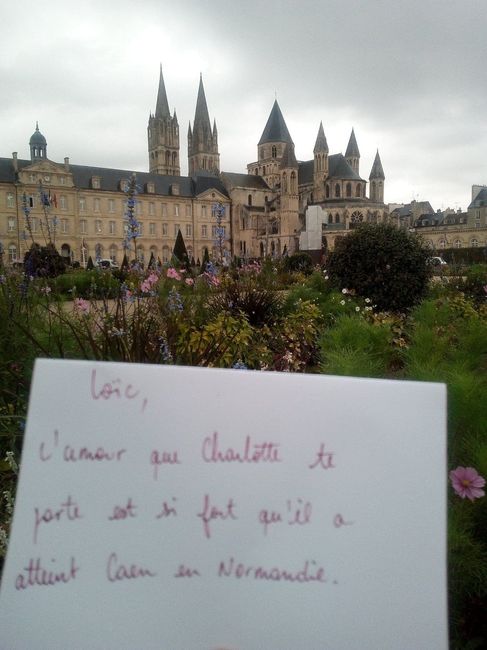 Loïc,
L'amour que Charlotte te
porte est si fort qu'il a
atteint Caen en Normandie.